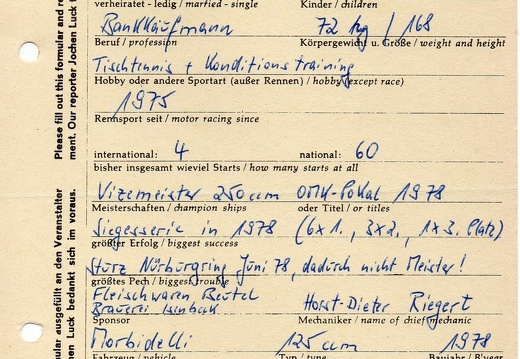 verheiratet - ledig / married - single Kinder / children
Bankkaufmann 72 kg / 168
Beruf / profession Körpergewicht u. Größe / weight and height
Tischtennis + Konditionstraining
Hobby oder andere Sportart (außer Rennen) / hobby (except race)
1975
Rennsport seit / motor racing since
international: 4 national: 60
bisher insgesamt wieviel Starts / how many starts at all
Vizemeister 250 ccm OMK-Pokal 1978
Meisterschaften / champion ships oder Titel / or titles
Siegesserie in 1978 (6x1., 3x2., 1x3. Platz)
größter Erfolg / biggest success
Sturz Nürburgring Juni 78, dadurch nicht Meister!
größtes Pech / biggest trouble
Fleischwaren, Beutel
Brauerei Isenbeck Horst-Dieter Riegert
Sponsor Mechaniker / name of chief mechanic
Morbidelli 125 ccm 1978
Fahrzeug / vehicle Typ / type Baujahr / B'year
Please fill out this formular and re
ment. Our reporter Jochen Luck
ular ausgefüllt an den Veranstalter
en Luck bedankt sich im voraus.